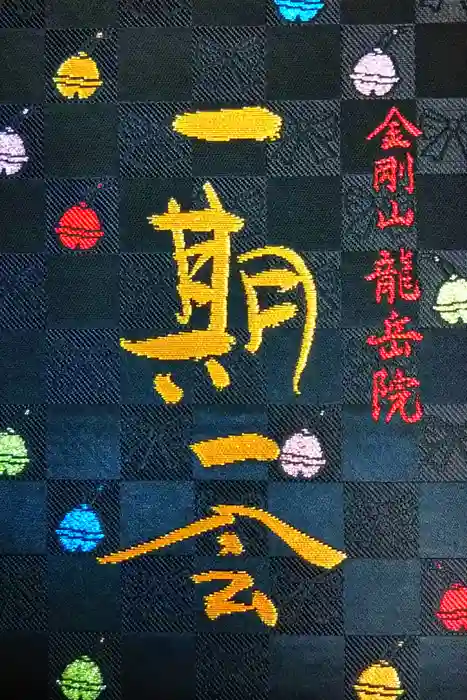 金剛山龍岳院
一期一会